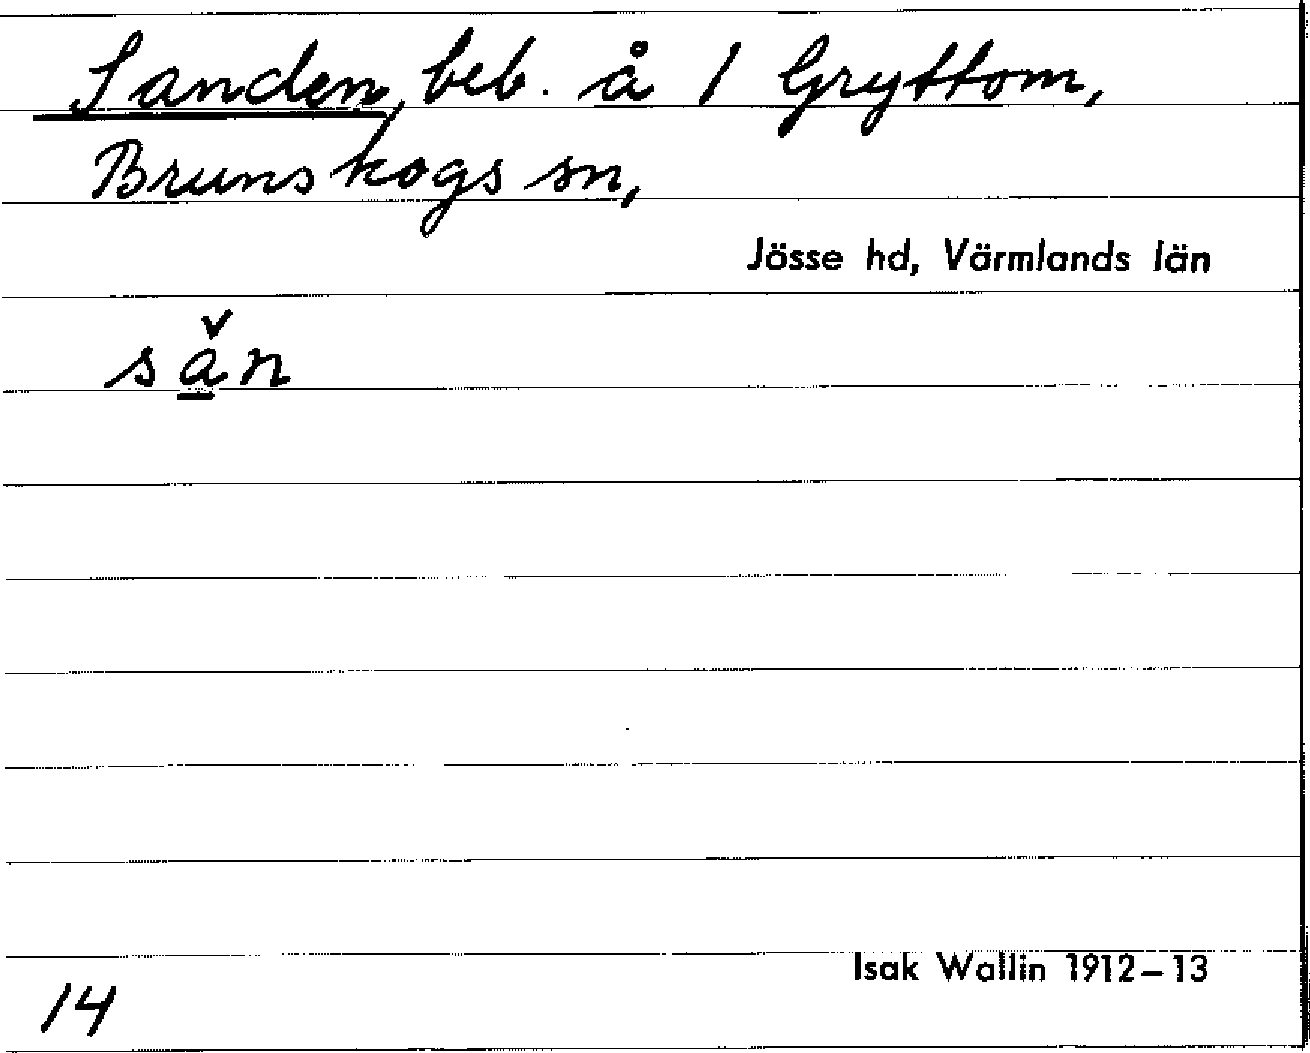 Sanden, beb. å 1 Gryttom,
Brunskogs sn,
Jösse hd, Värmlands län
sǎ̱n
Isak Wallin 1912–13
14